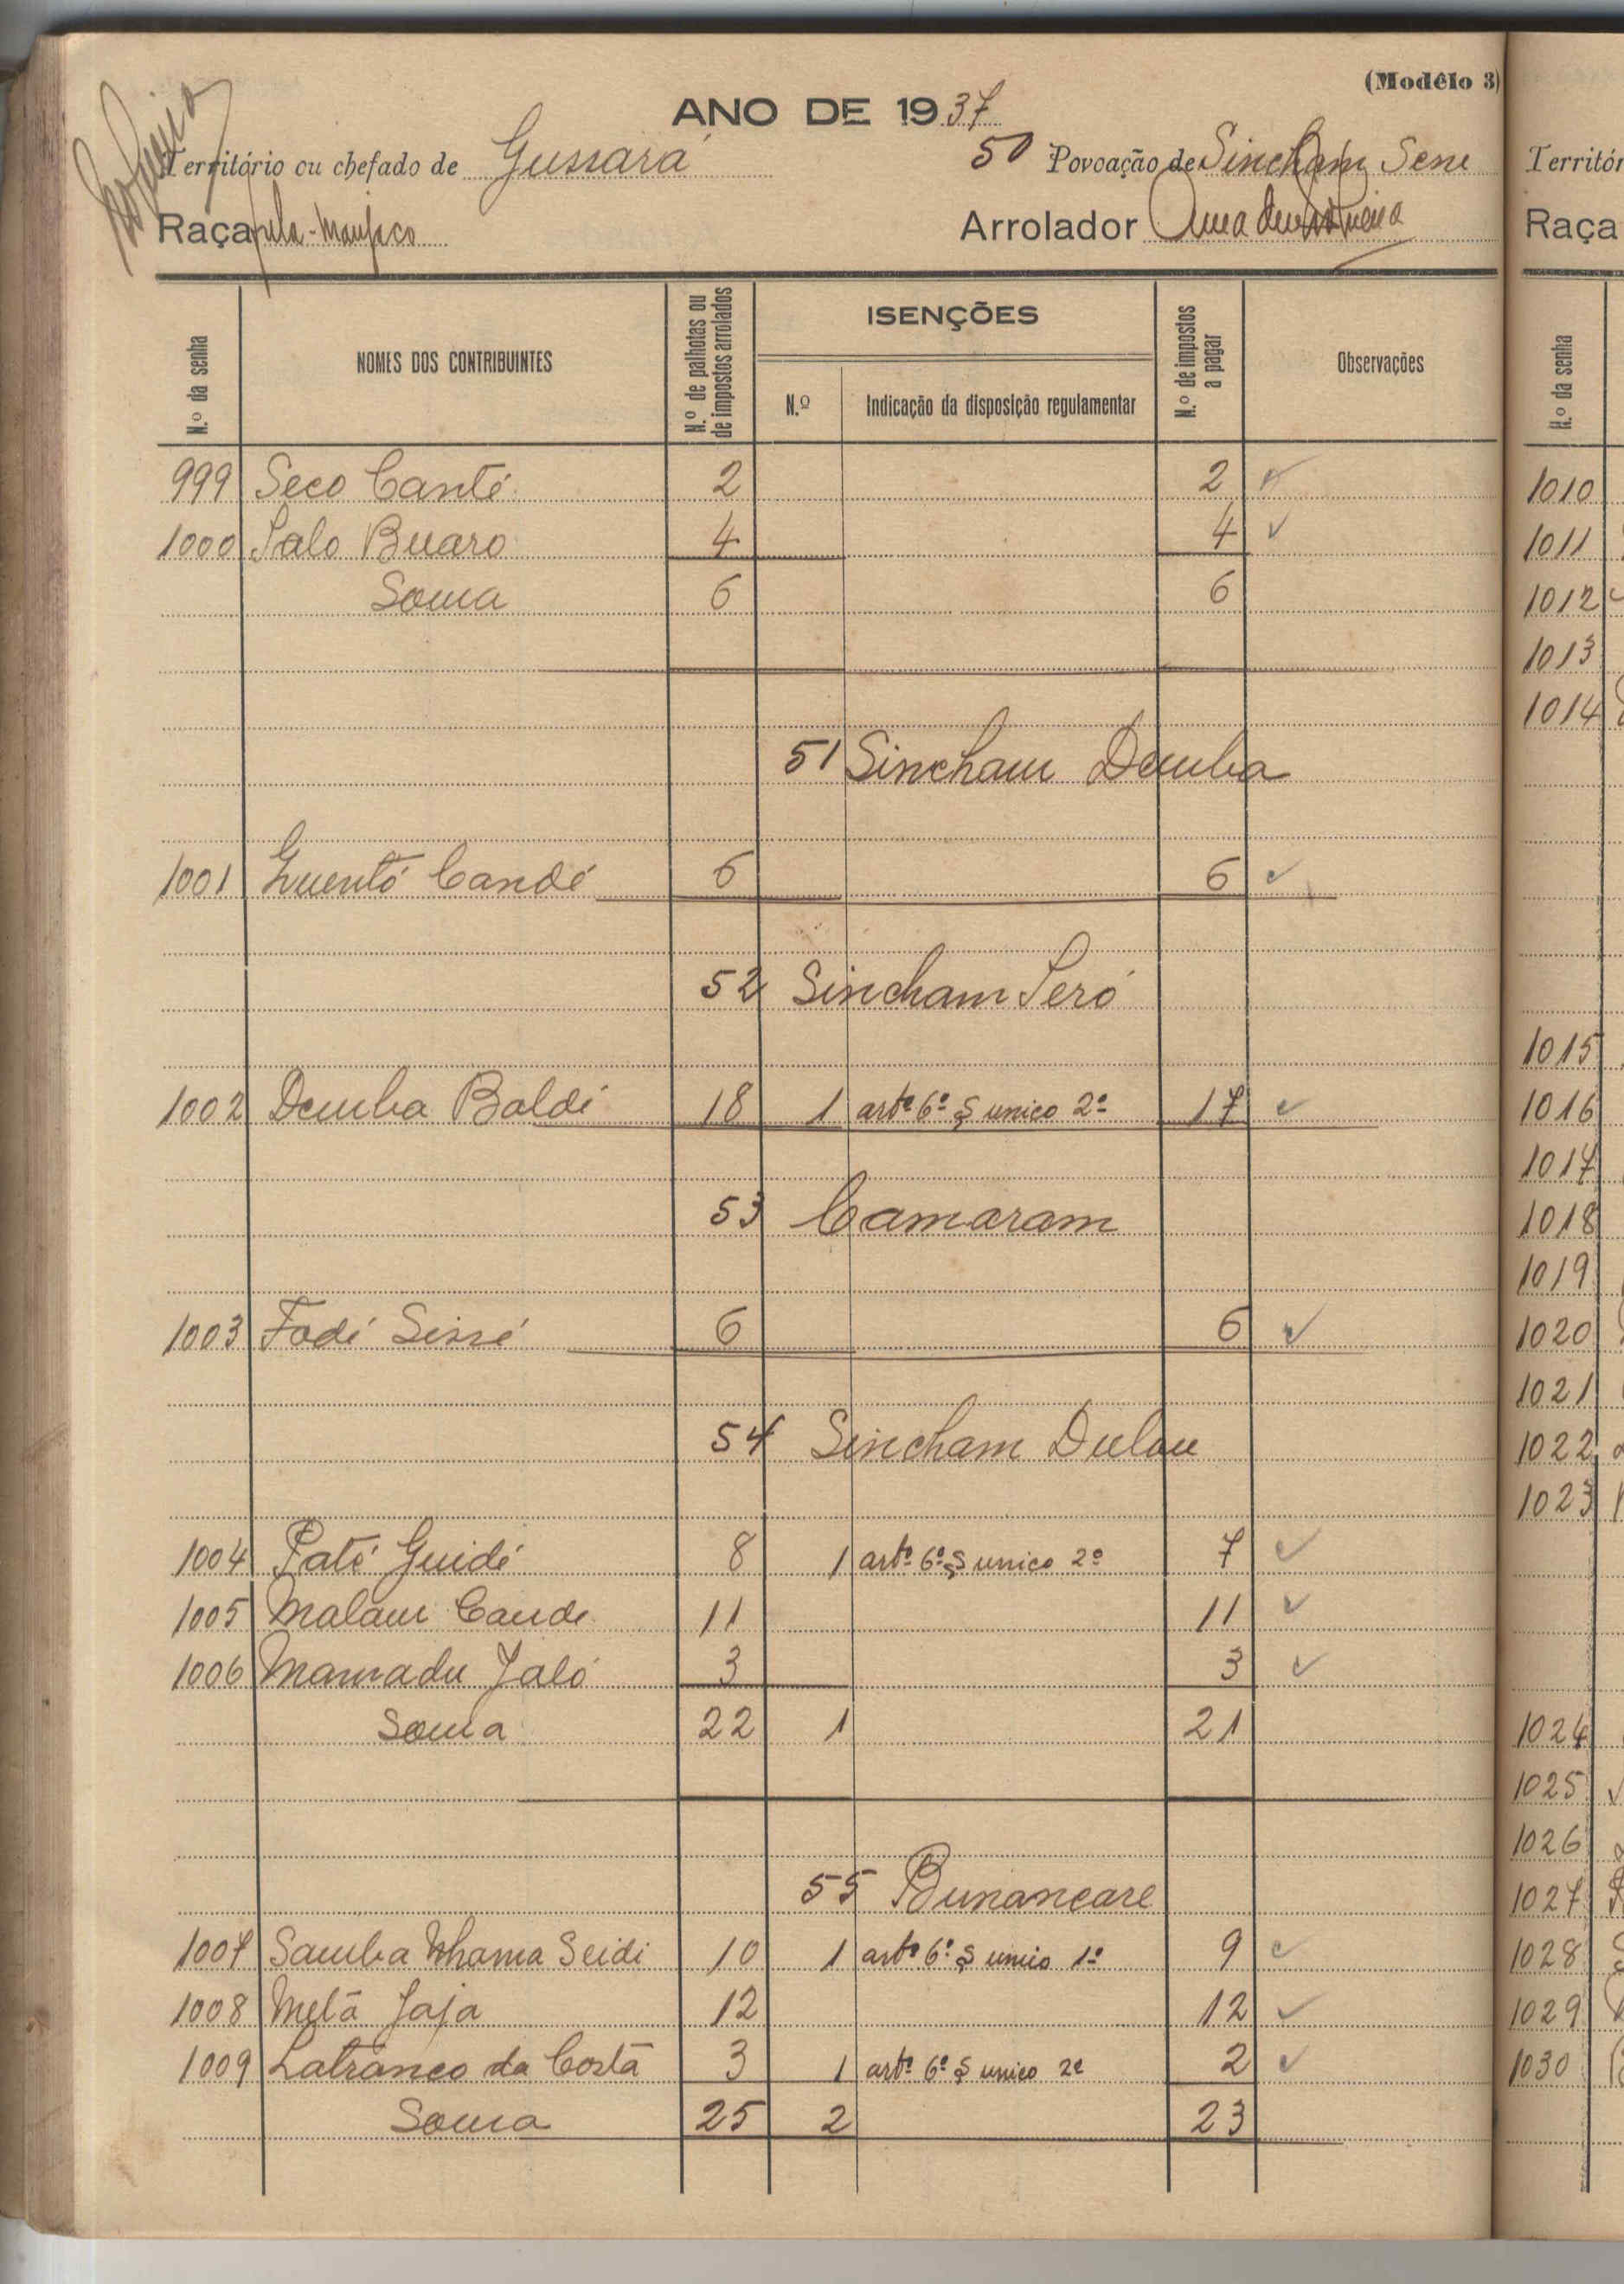 (Modêlo 3)
ANO DE 1937
Território ou chefado de Gussará 50 Povoação de Sincham Sene
Raça Arrolador
N.º da senha
NOMES DOS CONTRIBUINTES
N.º de palhotas ou de impostos arrolados
ISENÇÕES
N.º
Indicação da disposição regulamentar
N.º de impostos a pagar
Observações
999 Seco Canté 2 2 ✓
1000 Salo Buaro 4 4 ✓
Soma 6 6
51 Sincham Demba
1001 Candé 6 6 ✓
52 Sincham Seró
1002 Demba Baldé 18 1 artº 6º § unico 2º 17 ✓
53 Camaram
1003 Fodé Sissé 6 6 ✓
54 Sincham Dulau
1004 Paté Guidé 8 1 artº 6º § unico 2º 7 ✓
1005 Malam Cande 11 11 ✓
1006 Mamadu Jaló 3 3 ✓
Soma 22 1 21
55 Bunancare
1007 Samba Nhama Seidi 10 1 artº 6º § unico 1º 9 ✓
1008 Metá Jaja 12 12 ✓
1009 Latranco da Costa 3 1 artº 6º § unico 2º 2 ✓
Soma 25 2 23
Territór
Raça
N.º da senha
1010
1011
1012
1013
1014
1015
1016
1017
1018
1019
1020
1021
1022
1023
1024
1025
1026
1027
1028
1029
1030